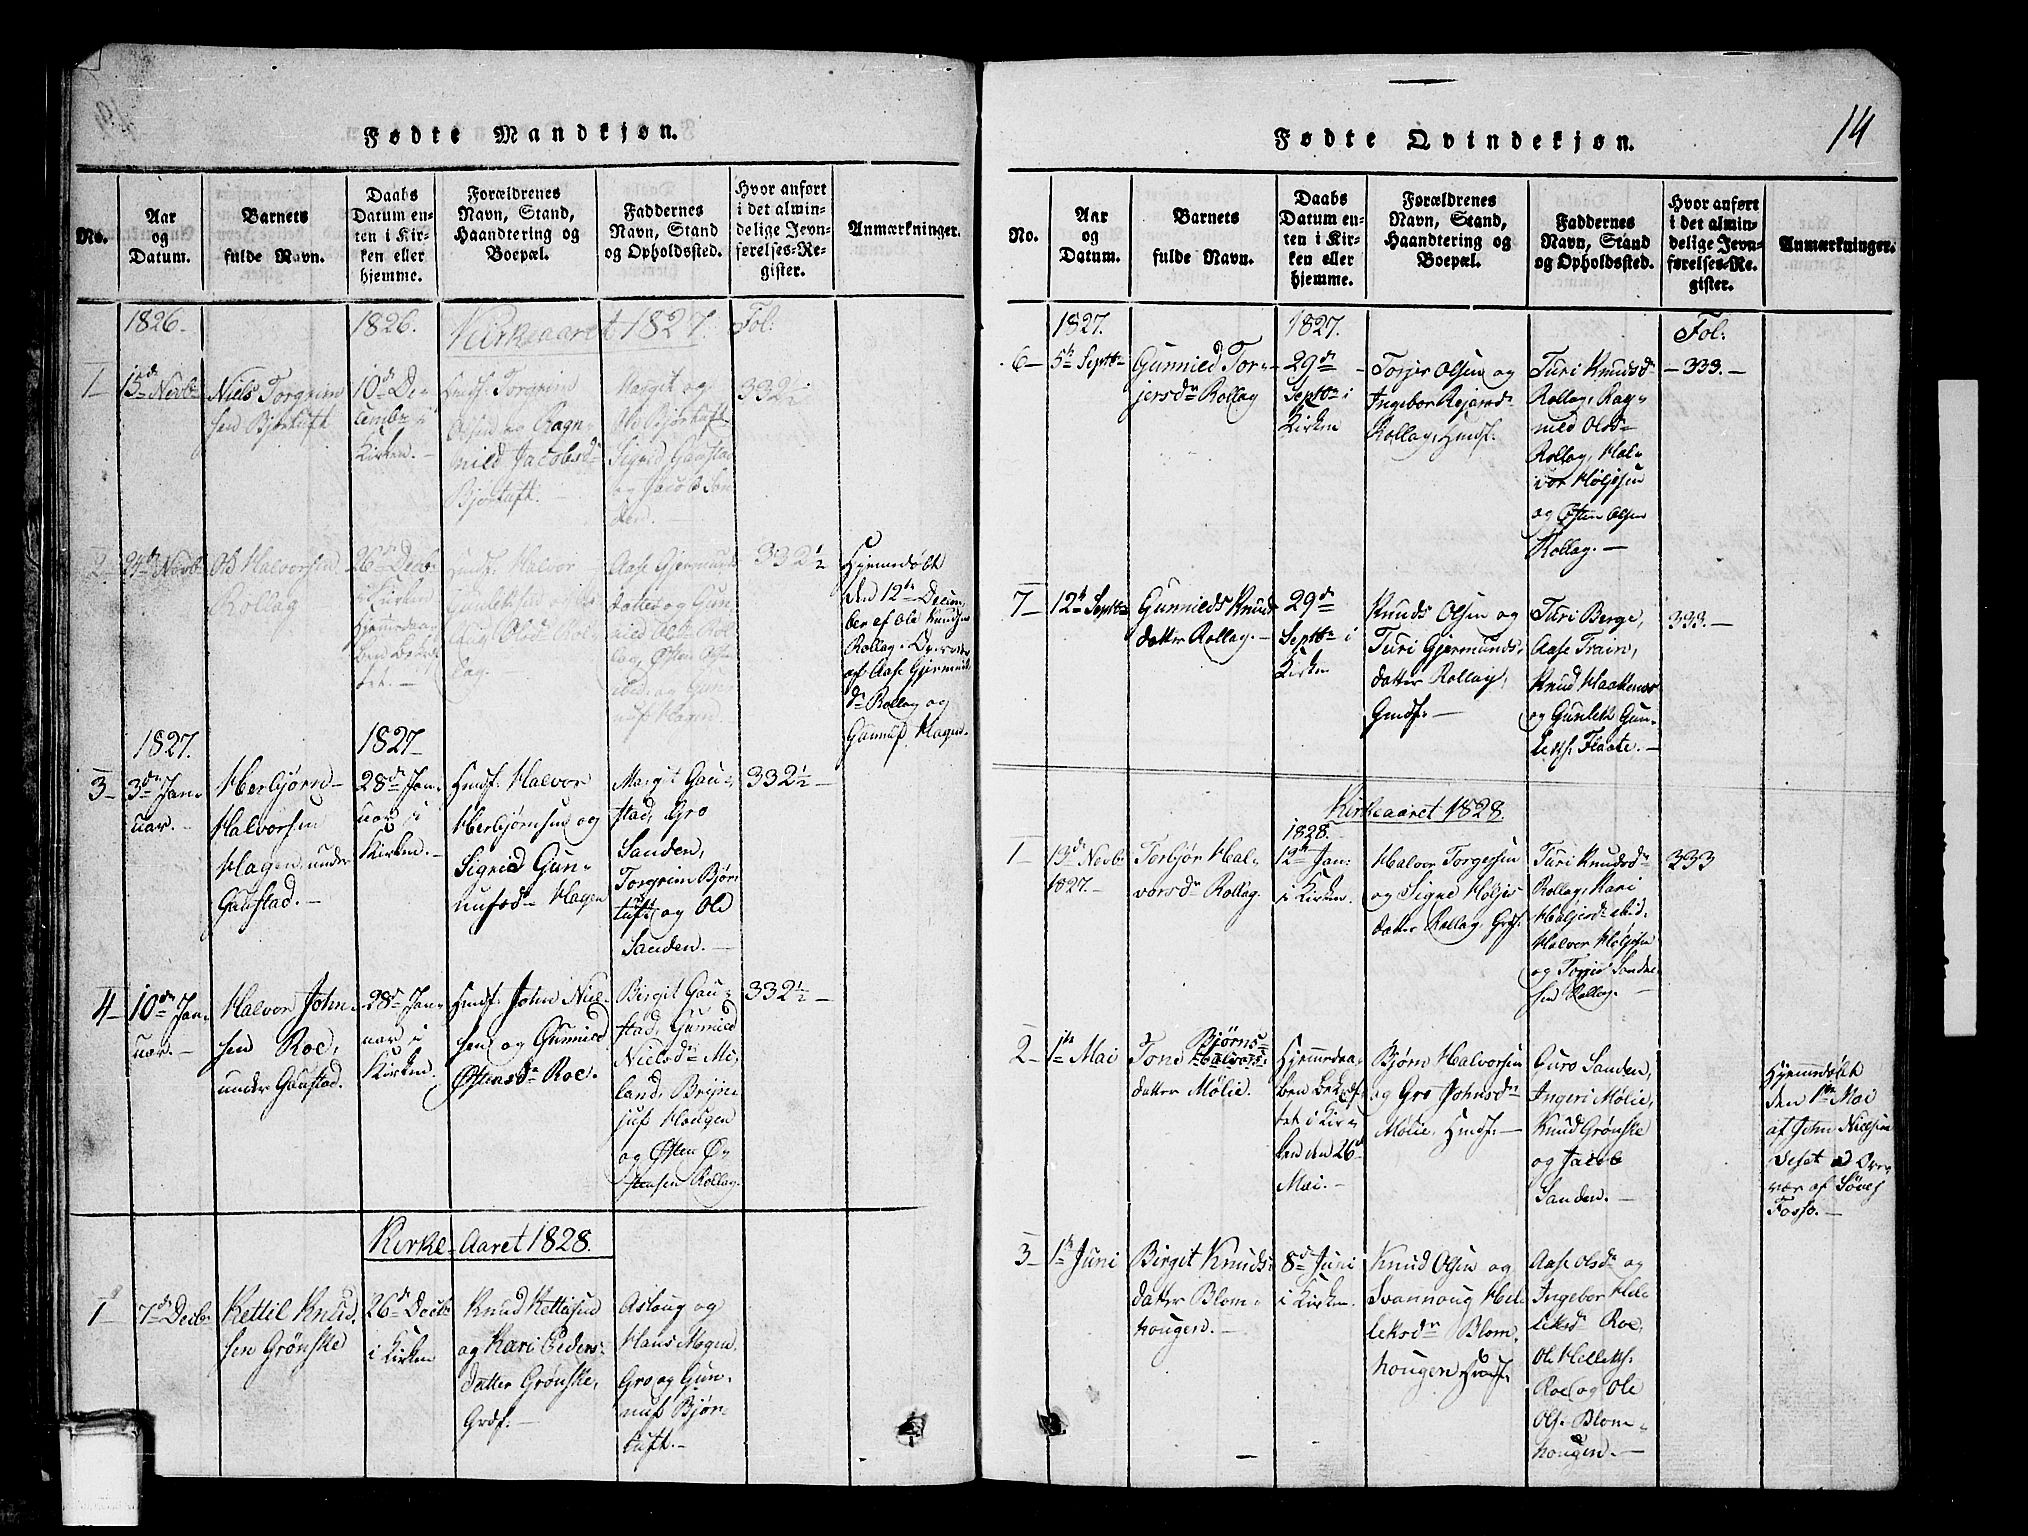 Fødte Mandkjøn.
No.
Aar
og
Datum.
Barnets
fulde Navn.
Daabs
Datum en-
ten i Kir-
ken eller
hjemme.
Forældrenes
Navn, Stand,
Haandtering og
Boepæl.
Faddernes
Navn, Stand
og Opholdssted.
Hvor anført
i det almin-
delige Jevn-
førelses-Re-
gister.
Anmærkninger.
1826.
1826.
Kirkeaaret 1827.
Fol:
1
15de Novbr
Niels Torgrim
sen Bjørtuft
10de De-
cembr i
Kirken.
Huusf. Torgrim
Olsen og Ragn-
nild Jacobsdr
Bjørtuft.
Margit og
Ole Bjørtuft
Sigrid Gaustad
og Jacob San
den.
332½
2
24de Novbr
Ole Halvorsen
Rollag
26de Decbr
i Kirken
Hjemmedaa-
ben bekræf-
tet.
Huusf. Halvor
Rol-
lag.
Aase Gjermunds
datter og Gun-
nild Olsdr Rol-
lag, Østen Ols-
ibid. og Gun-
nuf Hagen
332½
Hjemmedøbt
den 12te Decem-
ber af Ole Knudsen
Rollag. Overvær
af Aase Gjermund
dr Rollag og
Gunnuf Hagen.
1827.
1827
3
3de Jan-
uar.
Herbjørn
Halvorsen
Hagen, under
Gaustad.
28de Jan-
uar i
Kirken.
Huusf. Halvor
Herbjørnsen og
Sigrid Gun-
nufsdr Hagen
Margit Gau-
stad, Gro
Sanden,
Torgrim Bjør-
tuft, og Ole
Sanden.
332½
4
10de Jan-
uar.
Halvor John-
sen Roe,
under Gaustad.
28de Jan-
uar i
Kirken.
Huusf. John Niel-
sen og Gunnild
Østensdr Roe.
Birgit Gau-
stad, Gunnild
Nielsdr Me-
land, Brynn
juf Hougen
og Østen Ø-
stensen Rollag.
332½
Kirke-Aaret 1828.
1
7de Decbr
Kettil Knud-
sen Grønske
26de Decbr
i Kirken
Knud Kettilsen
og Kari Peders-
datter Grønske,
Grdf.
Aslaug og
Hans Mogen
Gro og Gun-
nuf Bjør-
tuft.
Fødte Qvindekjøn.
14
No.
Aar
og
Datum.
Barnets
fulde Navn.
Daabs
Datum en-
ten i Kir-
ken eller
hjemme.
Forældrenes
Navn, Stand,
Haandtering og
Boepæl.
Faddernes
Navn, Stand
og Opholdssted.
Hvor anført
i det almin-
delige Jevn-
førelses-Re-
gister.
Anmærkninger.
1827.
1827.
Fol:
6
5te Septbr
Gunnild Tor-
jersdr Rollag
29de
Septbr i
Kirken
Torjer Olsen og
Ingebor Rejersdr
Rollag, Huusf.
Turi Knudsdr
Rollag, Rag-
nild Olsdr
Rollag, Hal-
vor Høljesen
og Østen Olsen
Rollag.
333.
7
12te Septbr
Gunnilds Knud
datter Rollag.
29de
Septbr i
Kirken
Knuds Olsen og
Turi Gjermunds-
datter Rollag,
Grdf.
Turi Berge,
Aase Traim,
Knud Haakensen
og Gunlek Gun-
leks. Flaate.
333.
Kirkeaaret 1828.
1
13de Novbr
1827.
Torbjør Hal-
vorsdr Rollag.
1828.
12te Jan:
i Kirken.
Halvor Torgersen
og Signe Høljes
datter Rollag, Grdf.
Turi Knudsdr
Rollag, Kari
Høljesdr ibid.
Halvor Høljesen
og Torjus Sander
sen Rollag.
333
2
1te Mai
Tone Bjørns
Halvors-
datter Mølie.
Hjemmedaa-
ben bekræf-
tet i Kir-
ken den 26de
Mai.
Bjørn Halvorsen
og Gro Johnsdr
Mølie, Huusf.
Guro Sanden,
Ingeri Mølie,
Knud Grønske
og Jacob
Sanden.
Hjemmedøbt
den 1te Mai
af John Nielsen
Over-
vær af
Fosso.
3
1te Juni
Birgit Knuds-
datter Blom-
hougen.
8de Juni
i Kirken.
Knud Olsen og
Svannoug Hel-
leksdr Blom-
hougen Huusf.
Aase Olsdr og
Ingebor Hel-
leksdr Roe,
Ole Helleks.
Roe og Ole
Ols. Blom-
hougen.